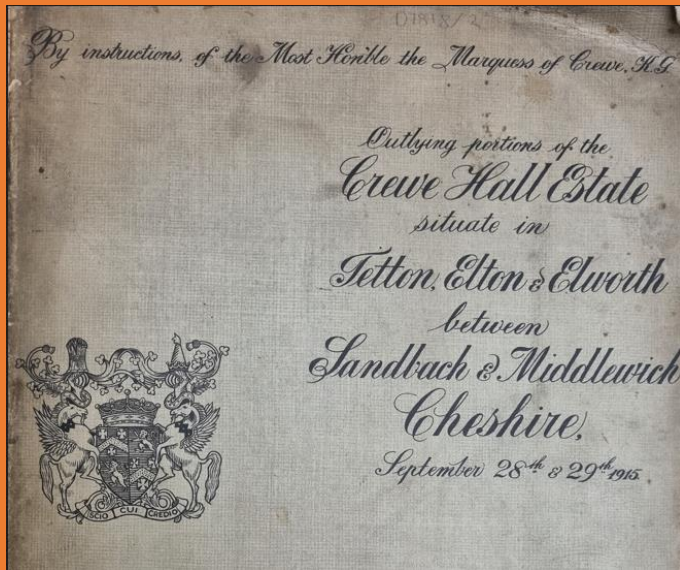 D1818/2
By instructions, of the Most Hon'ble the Marquess of Crewe, K.G.
Outlying portions of the
Crewe Hall Estate
situate in
Tetton, Elton & Elworth
between
Sandbach & Middlewich
Cheshire,
September 28th & 29th 1915.
SCIO CUI CREDIO